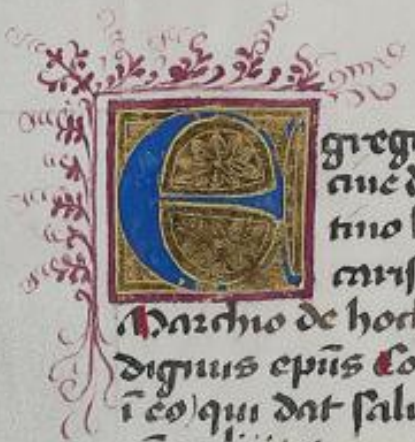 Egregi
ciue d
tino
caris
Marchio de hoc
dignus ep̄us Co
ī eo qui dat salu